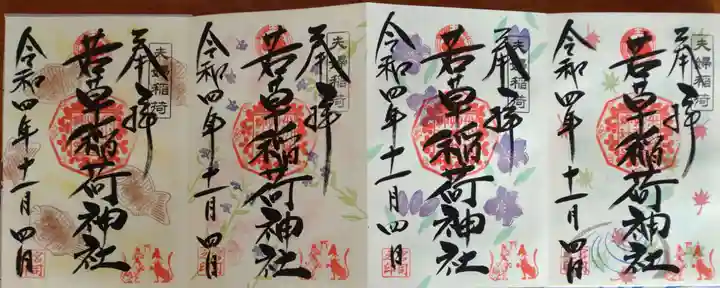 奉拝
夫婦稲荷
若草稲荷神社
令和四年十一月四日
奉拝
夫婦稲荷
若草稲荷神社
令和四年十一月四日
奉拝
夫婦稲荷
若草稲荷神社
令和四年十一月四日
奉拝
夫婦稲荷
若草稲荷神社
令和四年十一月四日